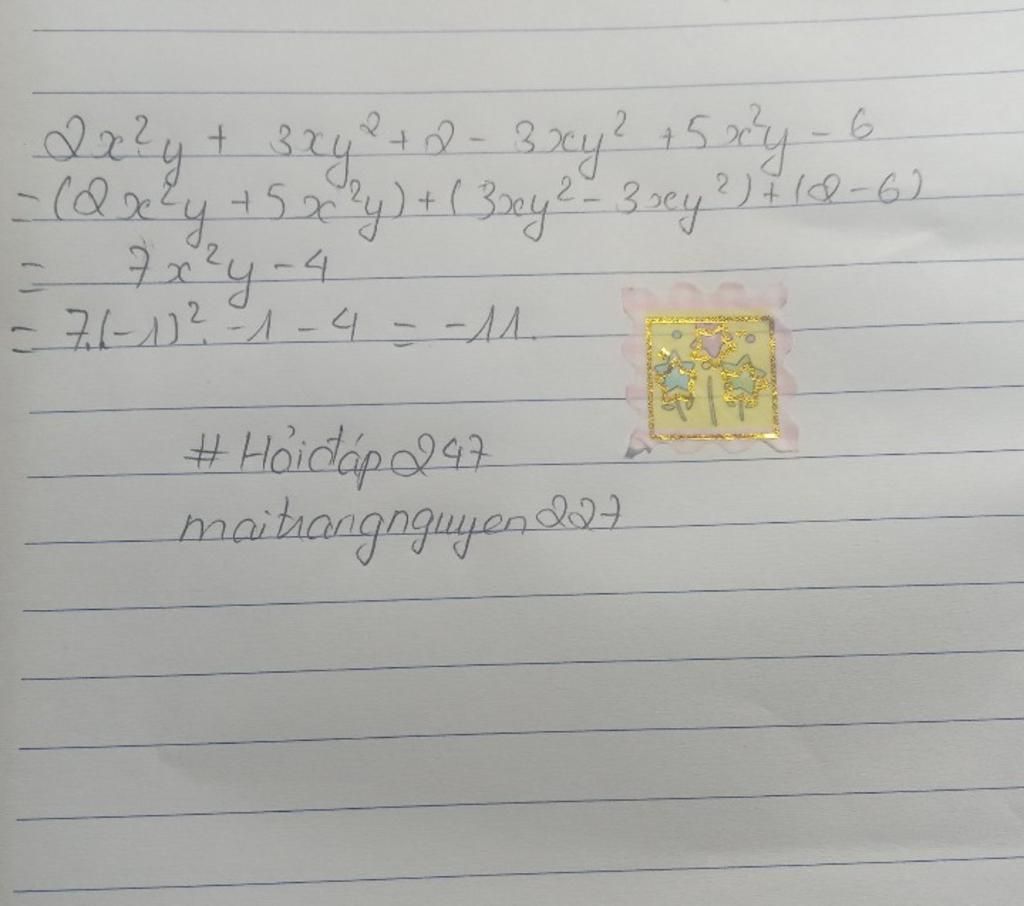 2x²y + 3xy² + 2 - 3xy² + 5x²y - 6
= (2x²y + 5x²y) + (3xy² - 3xy²) + (2 - 6)
= 7x²y - 4
= 7.(-1)². -1 - 4 = -11.
# Hỏiđáp247
maitrangnguyen227